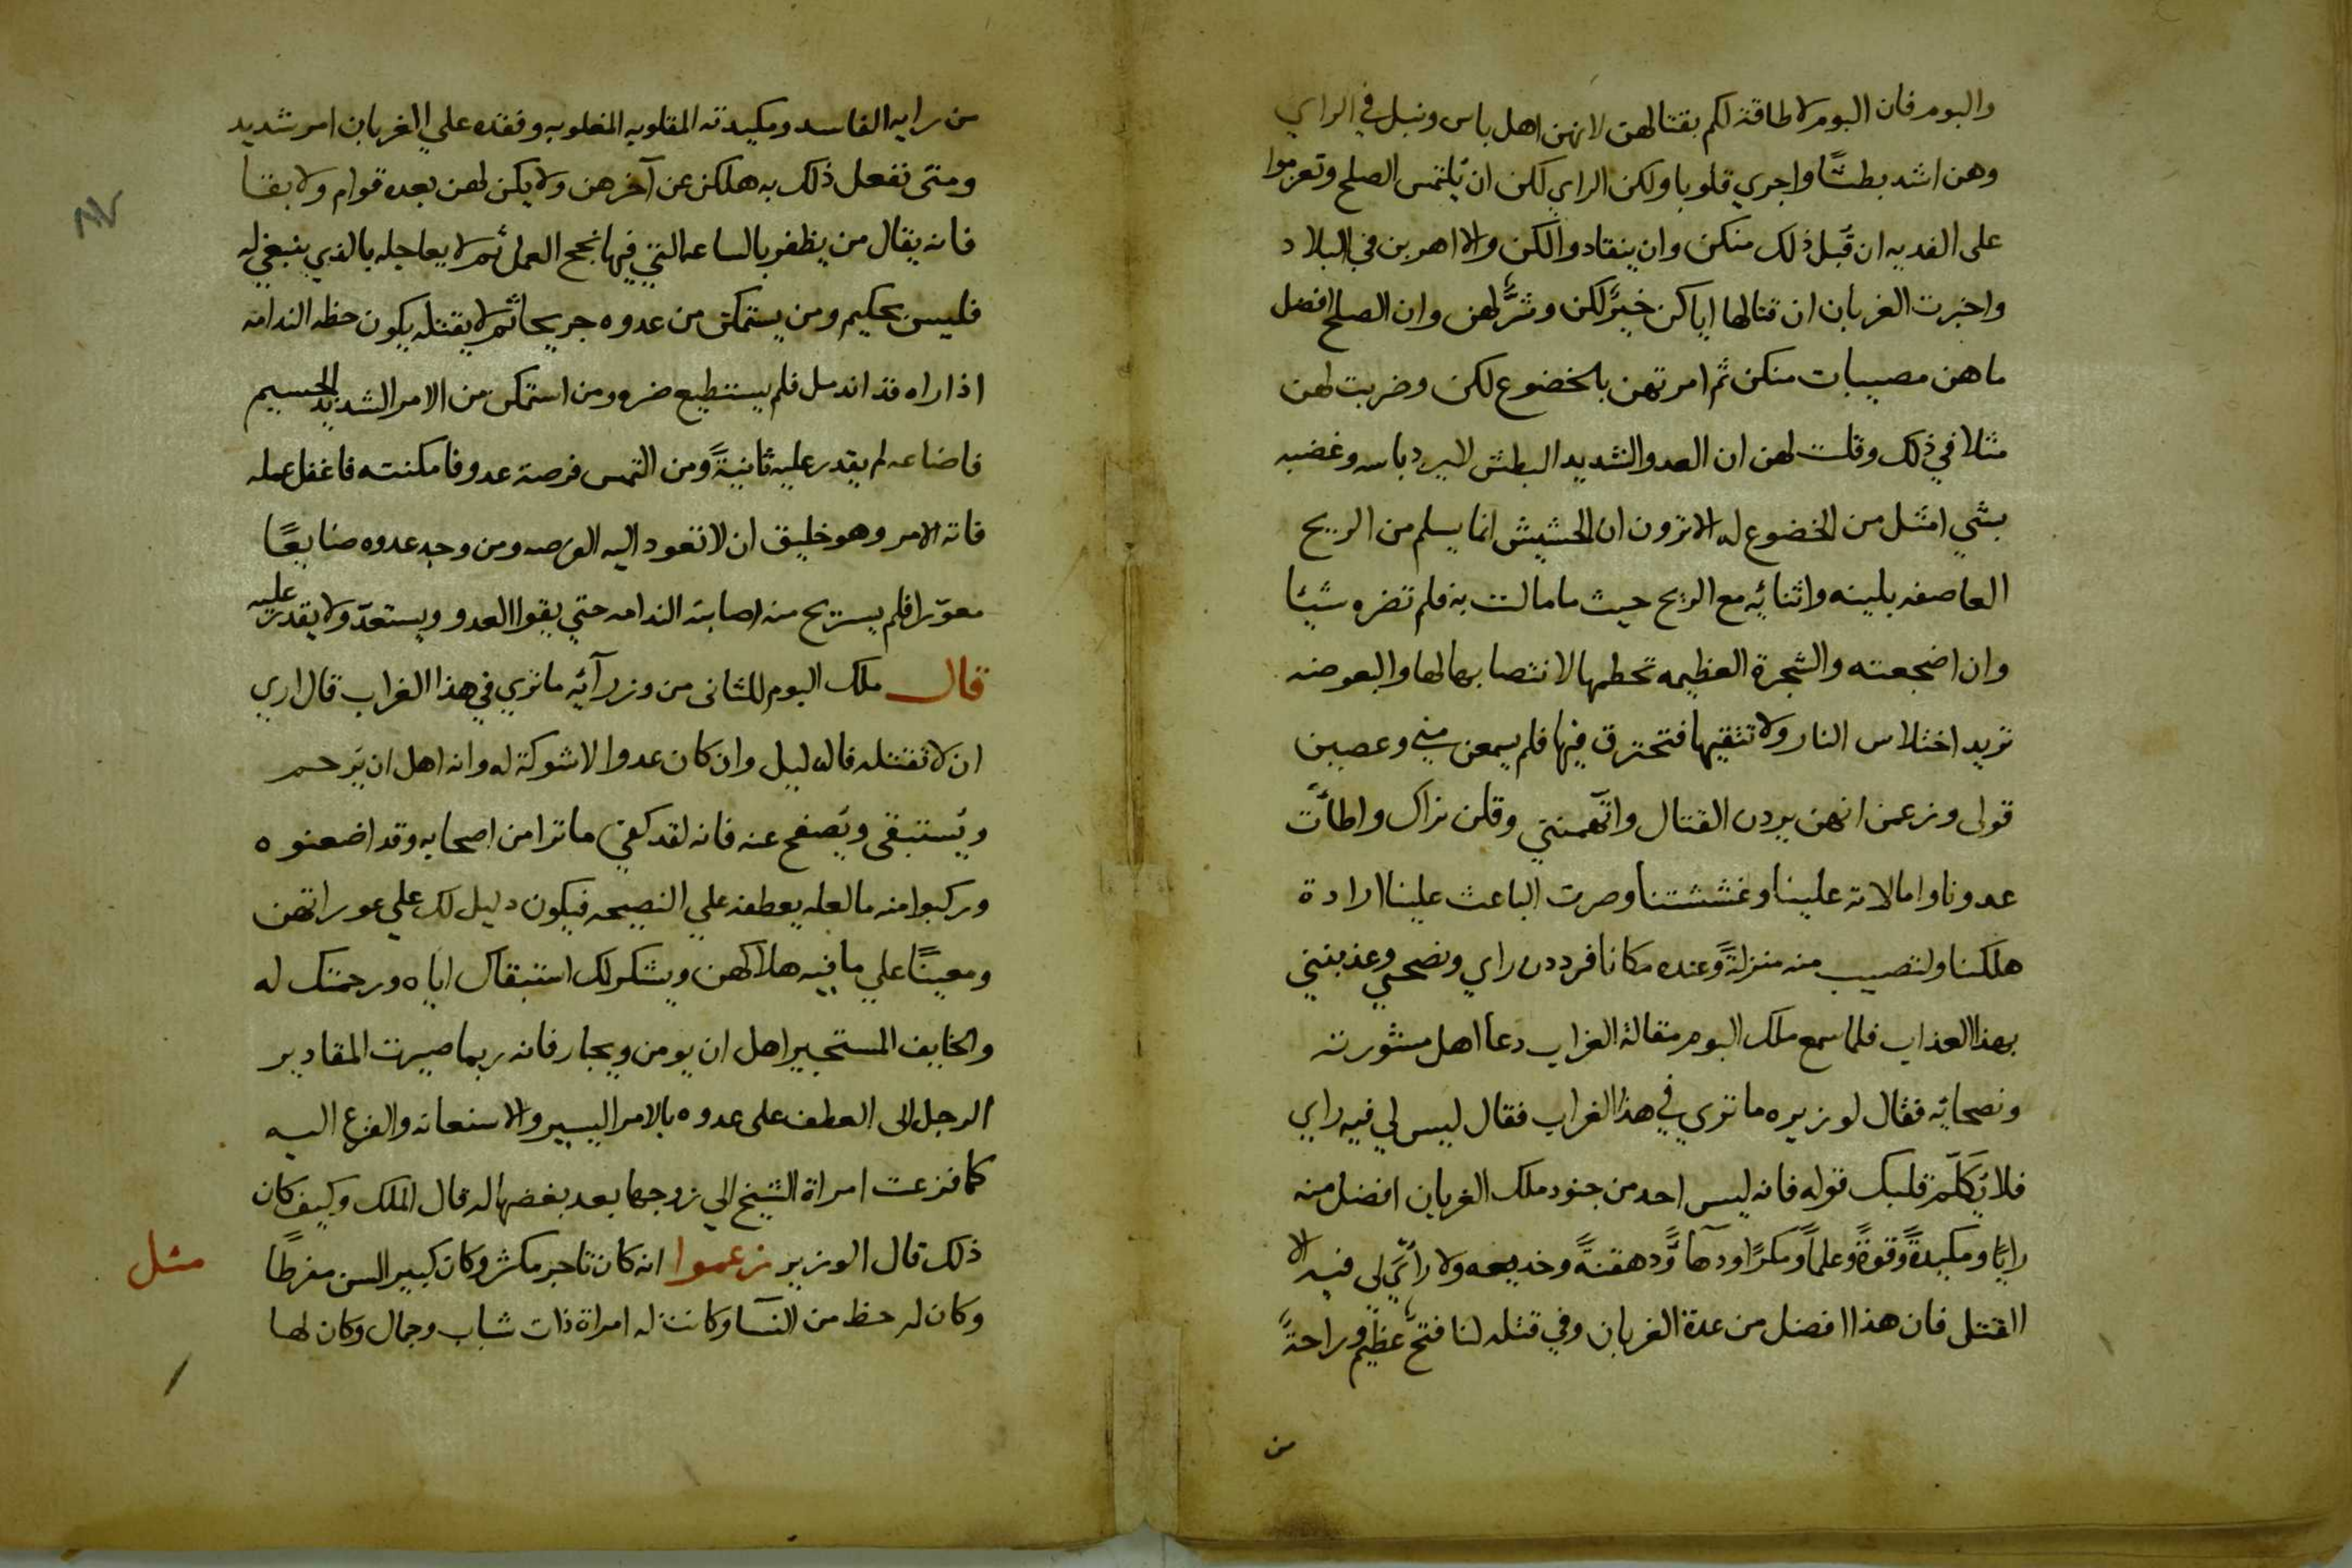 والبوم فان البوم لا طاقة لكم بقتالهن لانهن اهل باس ونبل في الراي
وهن اشد بطشًا واجري قلوبا ولكن الراي لكن ان يُلتمس الصلح وتعرموا
على الفديه ان قَبل ذلك منكن وان ينقادوا لكن والا اهربن في البلاد
واخبرت الغربان ان قتالها اياكن خيرٌ لكن وشرٌّ لهن وان الصلح افضل
ما هن مصيبات منكن ثم امرتهن بالخضوع لكن وضربت لهن
مثلا في ذلك وقلت لهن ان العدو الشديد البطش لا يرد باسه وغضبه
بشي امثل من الخضوع له الا ترون ان الحشيش انما يسلم من الريح
العاصفه بلينه واثنائه مع الريح حيث ما مالت به فلم تضره شيئا
وان اضجعته والشجرة العظيمه تحطمها لانتصابها لها والبعوضه
تريد اختلاس النار ولا تتقيها فتحترق فيها فلم يسمعن مني وعصين
قولى وزعمن انهن يردن القتال واتّهمنني وقلن نراك واطأت
عدونا وامالاته علينا وغششتنا وصرت الباعث علينا ارادة
هلكنا ولتصيب منه منزلةً وعنده مكانا فرددن راي ونصحي وعذبنني
بهذا العذاب فلما سمع ملك البوم مقالة الغراب دعا اهل مشورته
ونصحائه فقال لوزيره ما تري في هذا الغراب فقال ليس لي فيه راي
فلا يُكَلّم قلبك قوله فانه ليس احد من جنود ملك الغربان افضل منه
رايًا ومكيدةً وقوةً وعلماً ومكرًا ودهآءً ودهقنةً وخديعه ولا رأيٌ لى فيه الا
القتل فان هذا افضل من عدة الغربان وفي قتله لنا فتحٌ عظيم وراحةً
من
من رايه الفاسد ومكيدته المقلوبه المغلوبه وفقده علي الغربان امر شديد
ومتى تفعل ذلك به هلكن عن آخرهن ولا يكن لهن بعده قوام ولا بقا
فانه يقال من يظفر بالساعه التي فيها نجح العمل ثم لا يعاجله بالذي ينبغي له
فليس بحكيم ومن يستمكن من عدوه جريحا ثم لا يقتله يكون حظه الندامه
اذا راه قد اندمل فلم يستطيع ضره ومن استمكن من الامر الشديد الجسيم
فاضاعه لم يقدر عليه ثانيةً ومن التمس فرصة عدو فامكنته فاغفل عمله
فاته الامر وهو خليق ان لا تعود اليه الفرصه ومن وجد عدوه ضايعًا
معوّرا فلم يستريح منه اصابته الندامه حتي يقوا العدو ويستعدّ ولا يقدر عليه
قال ملك البوم للثانى من وزرآئه ما تري في هذا الغراب قال اري
ان لا تقتله فالدليل وان كان عدوا لا شوكة له وانه اهل ان يُرحم
ويُستبقى ويُصفح عنه فانه لقد كفي ما ترا من اصحابه وقد اضعنوه
وركبوا منه ما لعله يعطفه علي النصيحه فيكون دليل لك علي عوراتهن
ومعينًا علي ما فيه هلاكهن ويشكر لك استبقاك اياه ورحمتك له
والخايف المستجير اهل ان يومن ويجار فانه ربما صيرت المقادير
الرجل الى العطف على عدوه بالامر اليسير والاستعانه والفزع اليه
كما فزعت امراة الشيخ الي زوجها بعد بغضها له قال الملك وكيف كان
ذلك قال الوزير زعموا انه كان تاجر مكثر وكان كبير السن مفرطًا
مثل
وكان له حظ من النسآ وكانت له امراة ذات شباب وجمال وكان لها